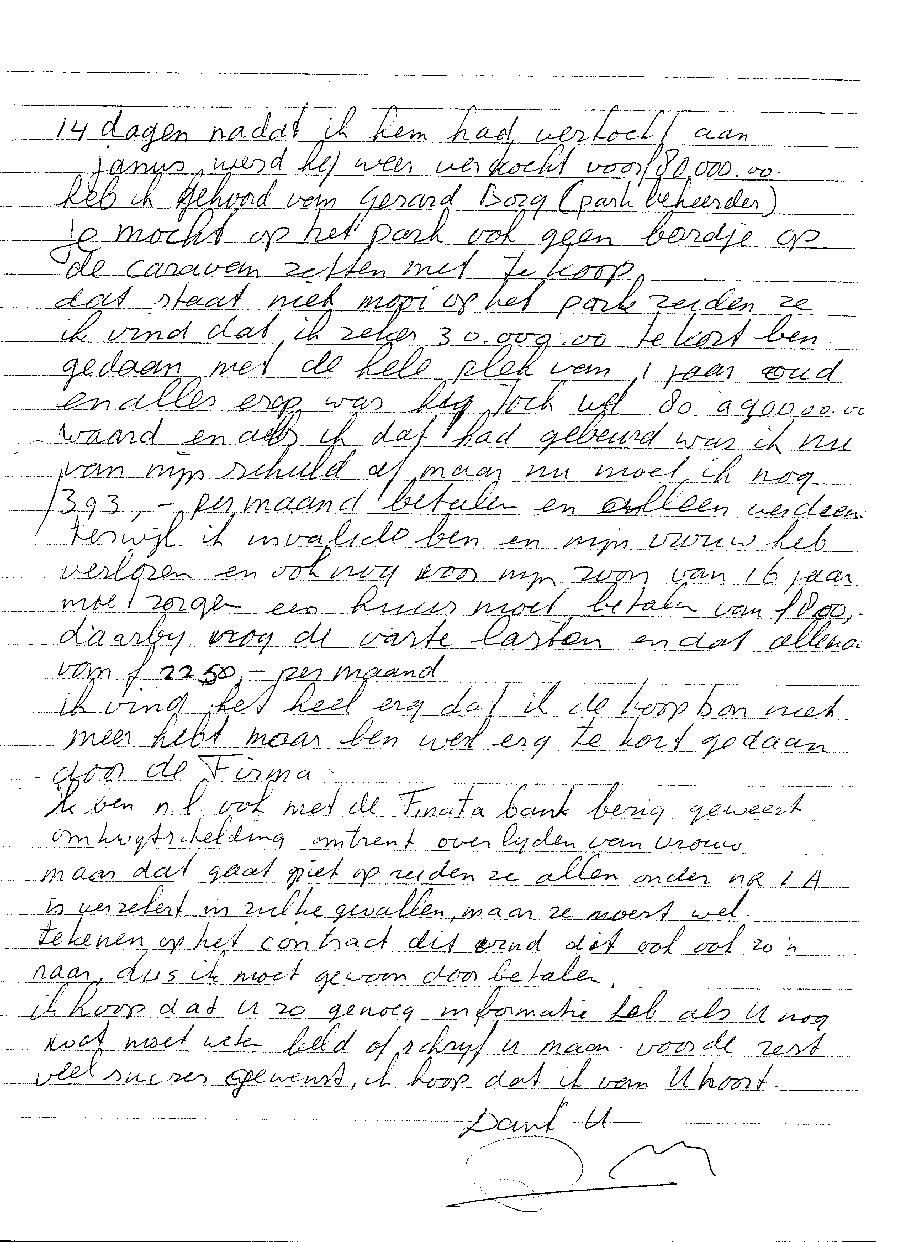 14 dagen nadat ik hem had verkocht aan
janus werd hij weer verkocht voor f80,000.00
heb ik gehoord van Gerard Borg (park beheerder)
je mocht op het park ook geen bordje op
de caravan zetten met te koop,
dat staat niet mooi op het park zeiden ze
ik vind dat ik zeker 30.000.00 te kort ben
gedaan met de hele plek van 1 jaar oud
en alles erop was hij toch wel 80 a
waard en als ik dat had gebeurd was ik nu
van mijn schuld af maar nu moet ik nog
393,- per maand betalen en alleen
terwijl ik invalide ben en mijn vrouw heb
verlozen en ook nog voor mijn zoon van 16 jaar
moet zorgen een huur moet betalen van f800,-
daarby nog de varte lasten en dat
van f 2250,- per maand
ik vind het heel erg dat ik de koopbon niet
meer hebt maar ben wel erg te kort gedaan
door de Firma.
ik ben nl ook met de Finata bank bezig geweest
omtrent overlyden van vrouw
maar dat gaat niet op zeiden ze allen onder nr 1 A
is verzekert in zulke gevallen, maar ze moest wel
tekenen op het contract dit vind dit ook ook zo'n
naar, dus ik moet gewoon door betalen,
ik hoop dat U zo genoeg informatie heb als U nog
wat moet weten beld of schryf u maar voor de rest
veel succes gewenst, ik hoop dat ik van U hoort.
Dank U